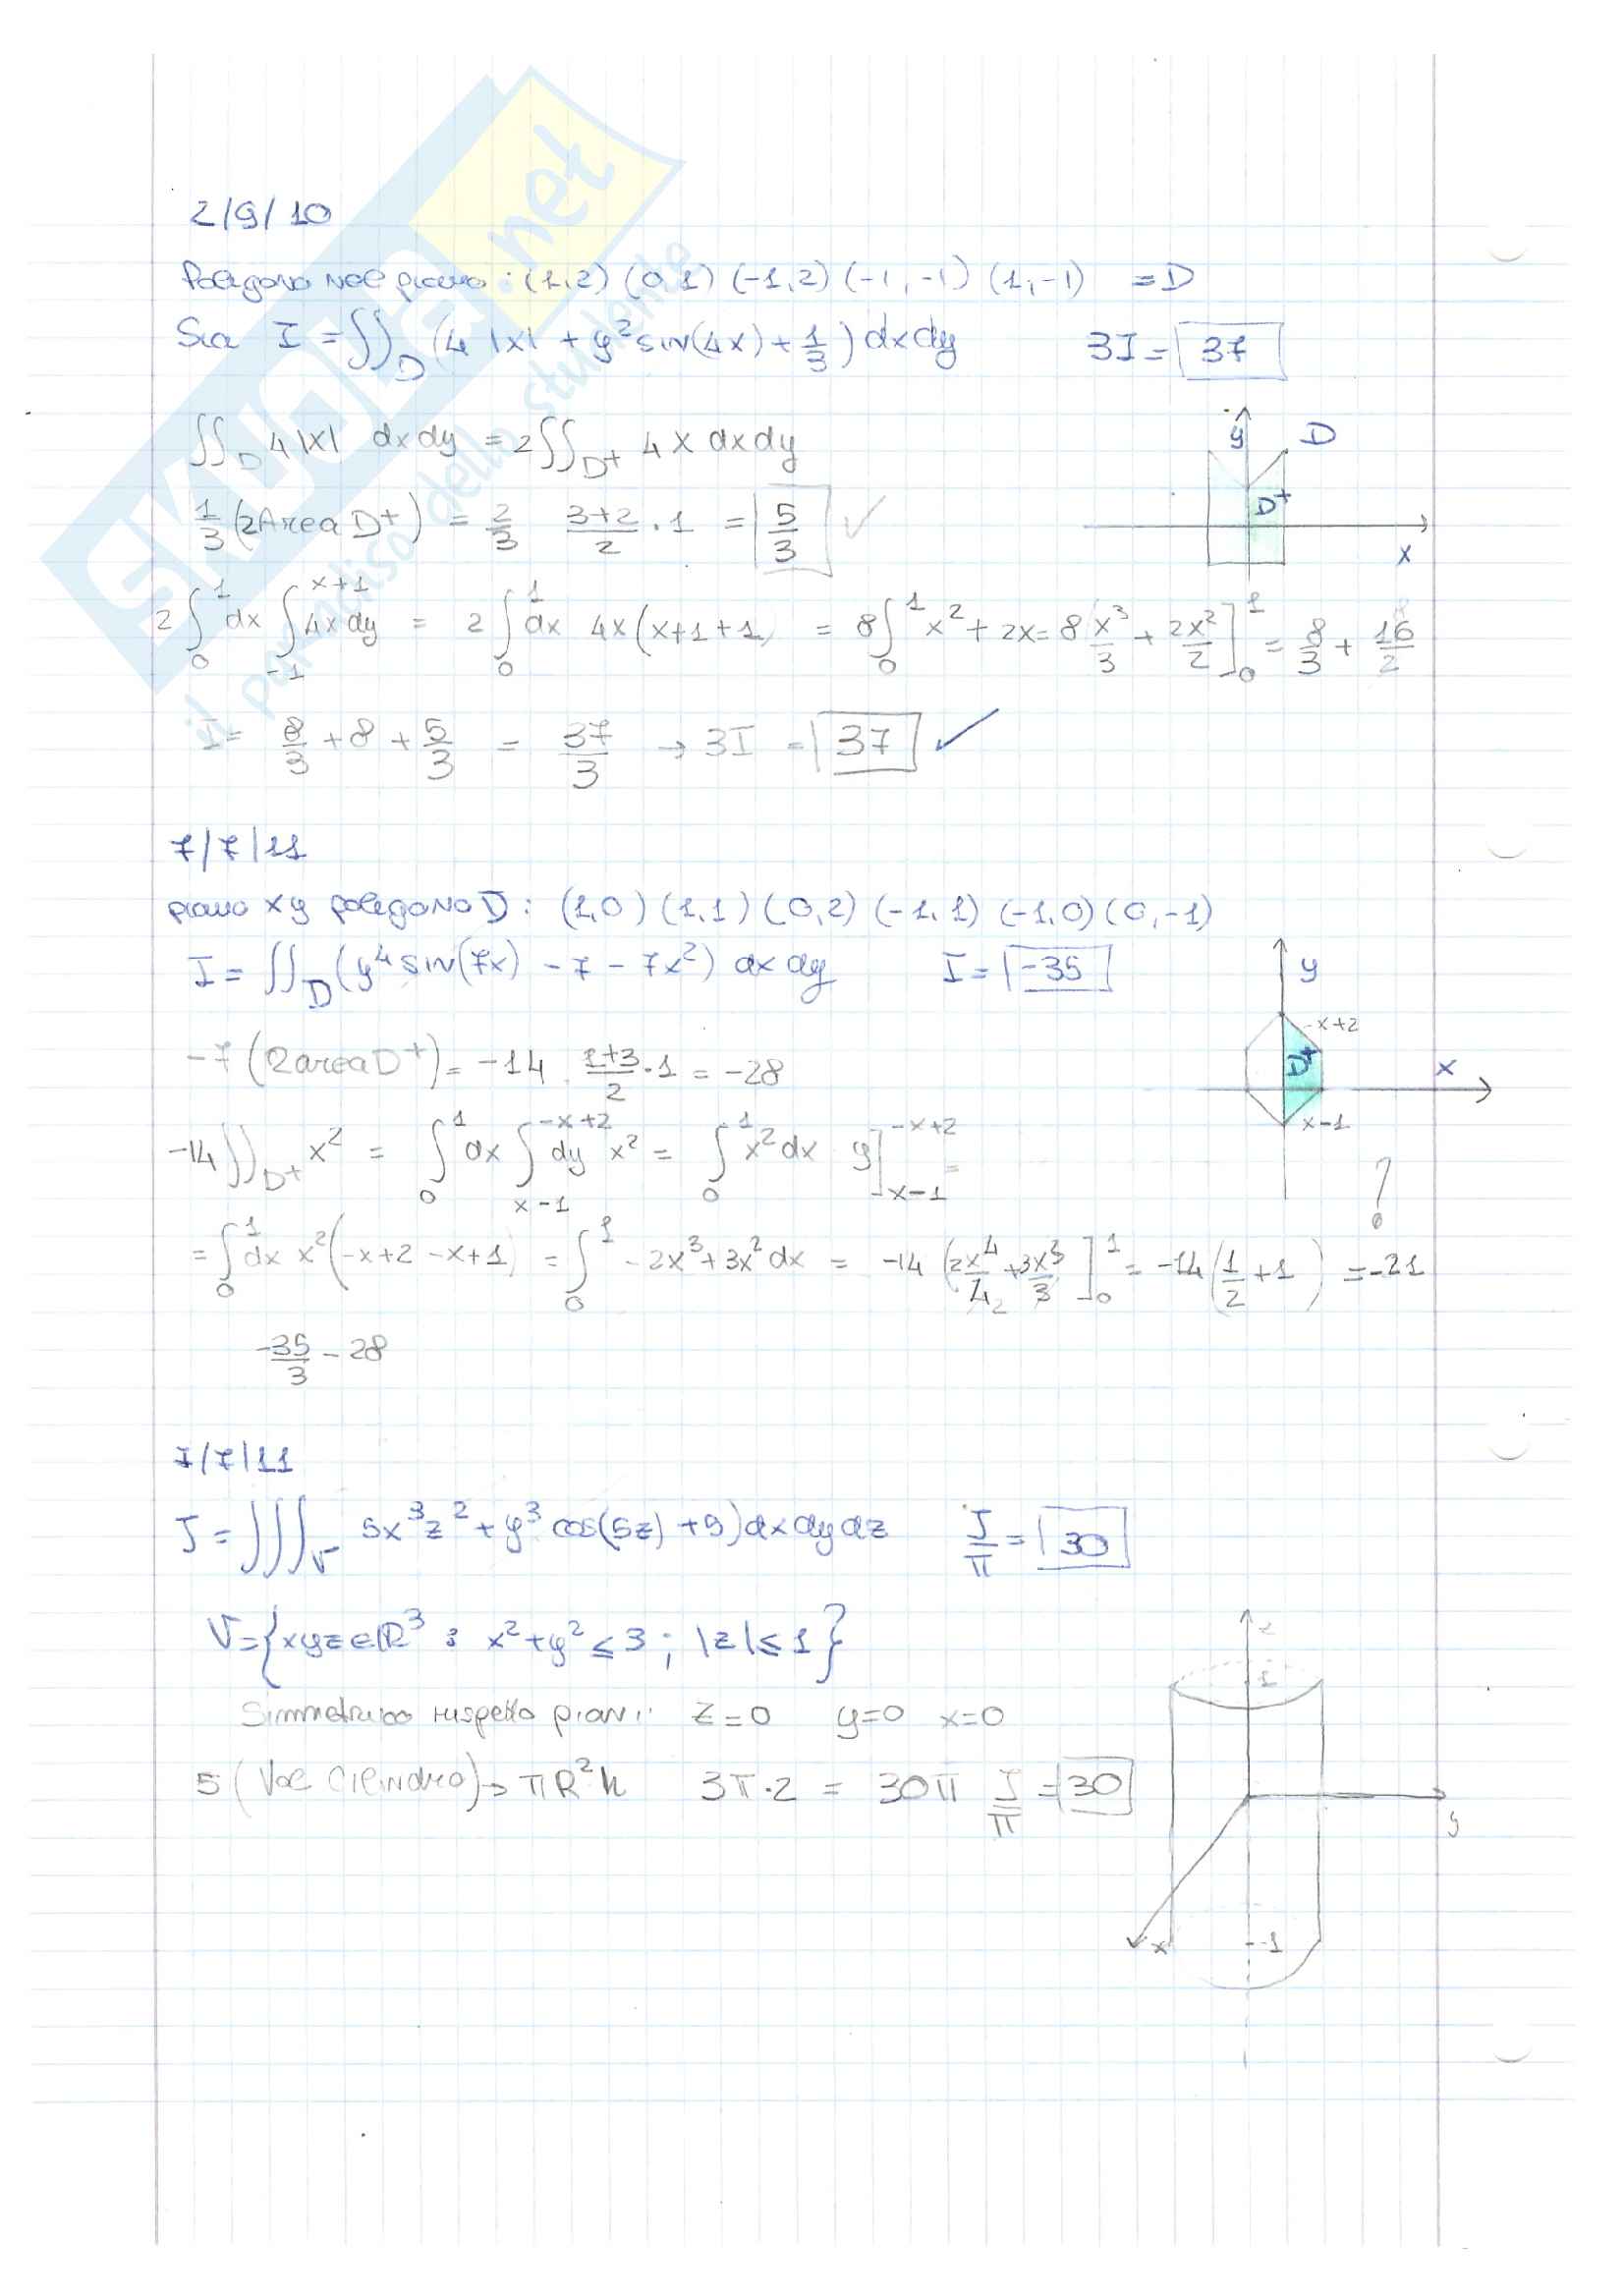 2/9/10
Poligono nel piano: (1,2) (0,1) (-1,2) (-1,-1) (1,-1) = D
Sia I = ∬_D (4|x| + y² sin(4x) + 1/3) dxdy 3I = 37
∬_D 4|x| dxdy = 2∬_D+ 4x dxdy
y D
1/3 (2Area D+) = 2/3 (3+2)/2 · 1 = 5/3 ✓
D+
x
2∫₀¹ dx ∫₋₁^(x+1) 4x dy = 2∫₀¹ dx 4x(x+1+1) = 8∫₀¹ x² + 2x = 8 x³/3 + 2x²/2 ]₀¹ = 8/3 + 16/2
I = 8/3 + 8 + 5/3 = 37/3 → 3I = 37 ✓
7/7/11
piano xy poligono D: (1,0) (1,1) (0,2) (-1,1) (-1,0) (0,-1)
I = ∬_D (y⁴ sin(7x) - 7 - 7x²) dxdy I = -35
y
-x+2
-7 (2area D+) = -14 · (1+3)/2 · 1 = -28
D+
x
x-1
-14∬_D+ x² = ∫₀¹ dx ∫_(x-1)^(-x+2) dy x² = ∫₀¹ x² dx y]_(x-1)^(-x+2) =
?
= ∫₀¹ dx x²(-x+2-x+1) = ∫₀¹ -2x³+3x² dx = -14 (2x⁴/4₂ + 3x³/3 ]₀¹ = -14(1/2 + 1) = -21
-35/3 - 28
7/7/11
J = ∭_V 5x³z² + y³ cos(5z) + 5) dxdydz J/π = 30
V = {xyz∈ℝ³ : x²+y² ≤ 3 ; |z| ≤ 1}
z
1
Simmetrico rispetto piani: z=0 y=0 x=0
5 (Vol Cilindro) → πR²h 3π·2 = 30π J/π = 30
y
x
-1
SKUOLA.net
il paradiso dello studente